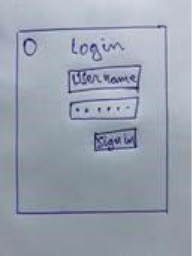 Login
Username
......
Sign in